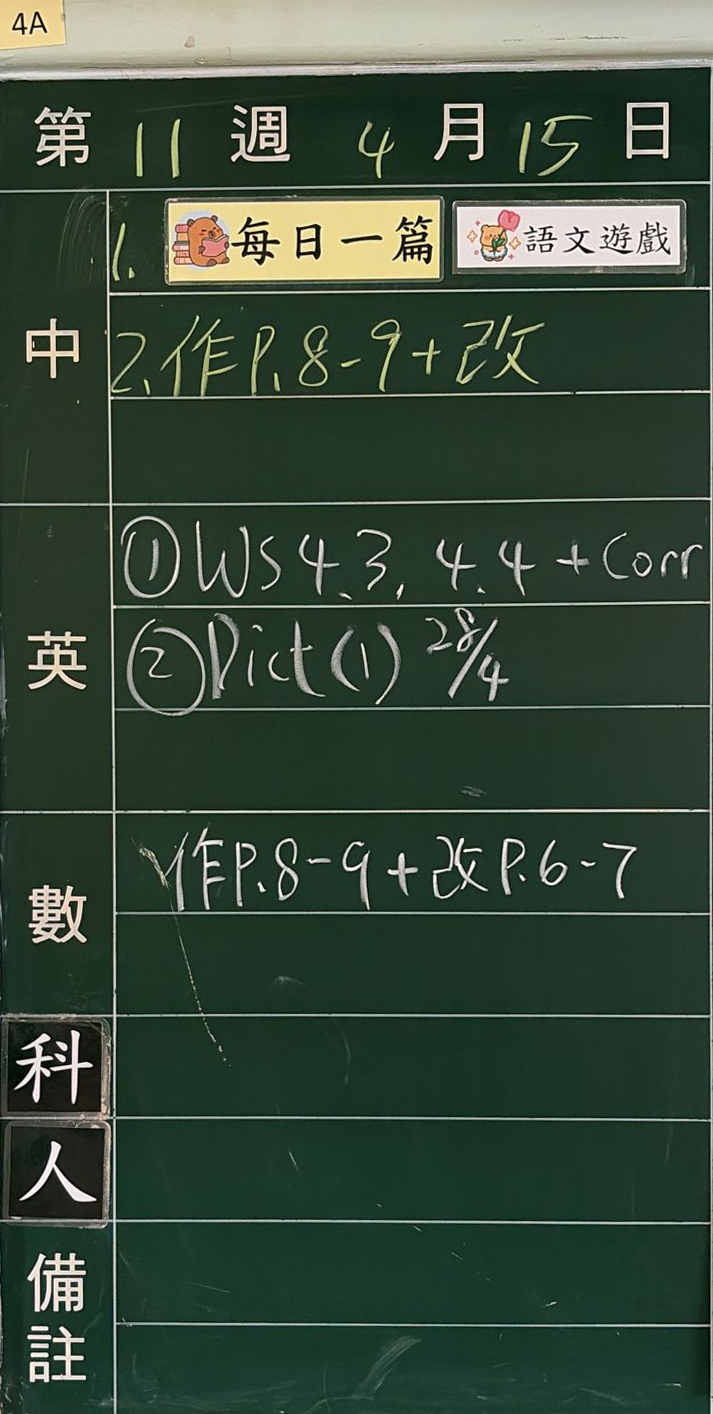 4A
第 11 週 4 月 15 日
中
1. 每日一篇 語文遊戲
2. 作P.8-9+改
英
① WS 4.3, 4.4 + Corr
② Dict (1) 28/4
數
作P.8-9+改P.6-7
科
人
備註